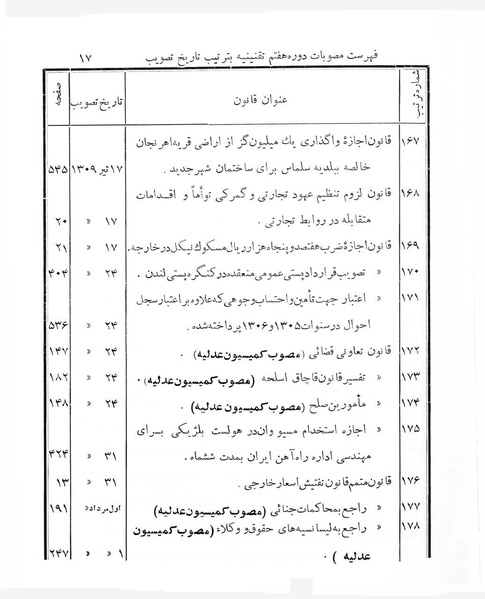 فهرست مصوبات دوره هفتم تقنینیه بترتیب تاریخ تصویب ۱۷
شماره ترتیب عنوان قانون تاریخ تصویب صفحه
۱۶۷ قانون اجازهٔ واگذاری یك میلیون گز از اراضی قریه اهرنجان
خالصه ببلدیه سلماس برای ساختمان شهر جدید . ۱۷ تیر ۱۳۰۹ ۵۴۵
۱۶۸ قانون لزوم تنظیم عهود تجارتی و گمرکی توأماً و اقدامات
متقابله در روابط تجارتی . ۱۷ » ۲۰
۱۶۹ قانون اجازهٔ ضرب هفتصد و پنجاه هزار ریال مسکوك نیکل در خارجه . ۱۷ » ۲۱
۱۷۰ » تصویب قرارداد پستی عمومی منعقده در کنگره پستی لندن . ۲۴ » ۴۰۴
۱۷۱ » اعتبار جهت تأمین و احتساب وجوهی که علاوه بر اعتبار سجل
احوال در سنوات ۱۳۰۵ و ۱۳۰۶ پرداخته شده . ۲۴ » ۵۳۶
۱۷۲ قانون تعاونی قضائی (مصوب کمیسیون عدلیه) . ۲۴ » ۱۴۷
۱۷۳ » تفسیر قانون قاچاق اسلحه (مصوب کمیسیون عدلیه) . ۲۴ » ۱۸۲
۱۷۴ » مأمورین صلح (مصوب کمیسیون عدلیه) . ۲۴ » ۱۴۸
۱۷۵ » اجازه استخدام مسیو وان در هولست بلژیکی برای
مهندسی اداره راه آهن ایران بمدت ششماه . ۳۱ » ۴۲۴
۱۷۶ قانون متمم قانون تفتیش اسعار خارجی . ۳۱ » ۱۳
۱۷۷ » راجع بمحاکمات جنائی (مصوب کمیسیون عدلیه) اول مرداد » ۱۹۱
۱۷۸ » راجع به لیسانسیه های حقوق و وکلاء (مصوب کمیسیون
عدلیه ) . ۱ » » ۲۴۷